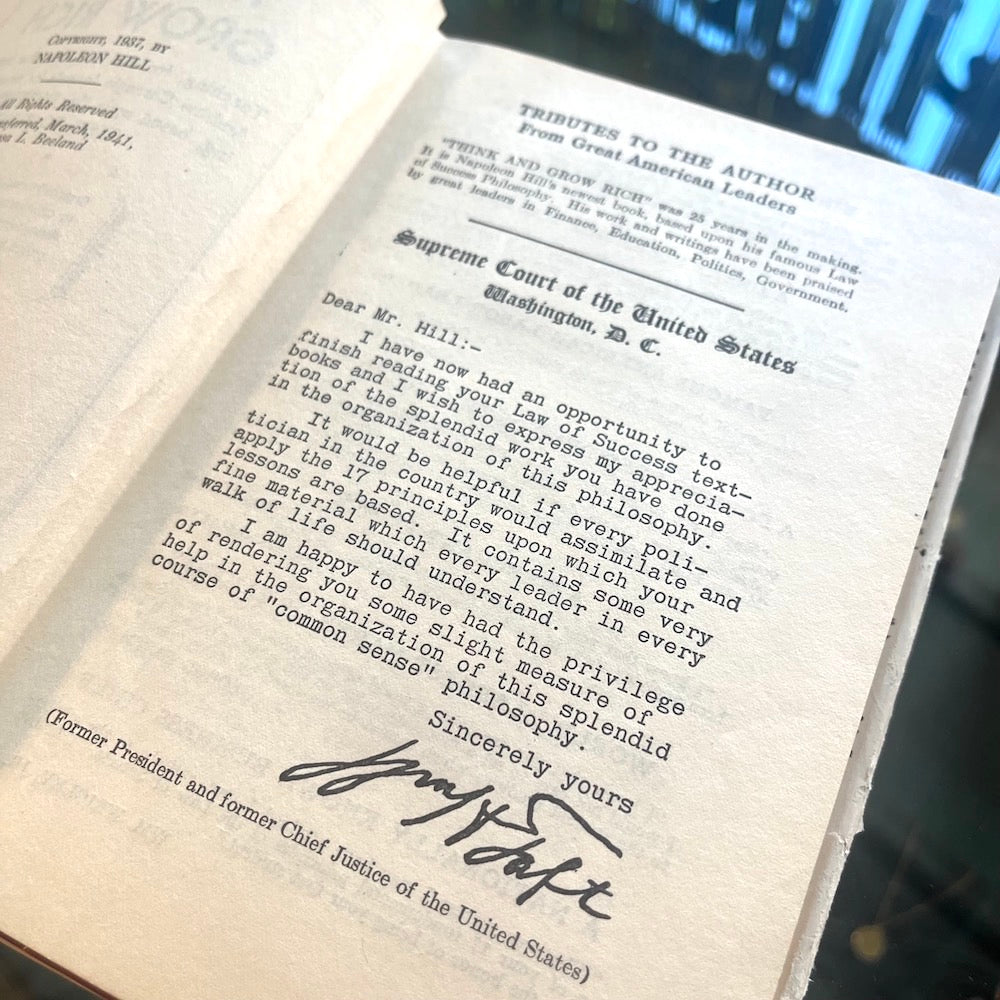 COPYRIGHT, 1937, BY
NAPOLEON HILL
All Rights Reserved
March, 1941,
L. Beeland
TRIBUTES TO THE AUTHOR
From Great American Leaders
"THINK AND GROW RICH" was 25 years in the making.
It is Napoleon Hill's newest book, based upon his famous Law
of Success Philosophy. His work and writings have been praised
by great leaders in Finance, Education, Politics, Government.
Supreme Court of the United States
Washington, D. C.
Dear Mr. Hill:-
I have now had an opportunity to
finish reading your Law of Success text-
books and I wish to express my apprecia-
tion of the splendid work you have done
in the organization of this philosophy.
It would be helpful if every poli-
tician in the country would assimilate and
apply the 17 principles upon which your
lessons are based. It contains some very
fine material which every leader in every
walk of life should understand.
I am happy to have had the privilege
of rendering you some slight measure of
help in the organization of this splendid
course of "common sense" philosophy.
Sincerely yours
Wm H Taft
(Former President and former Chief Justice of the United States)